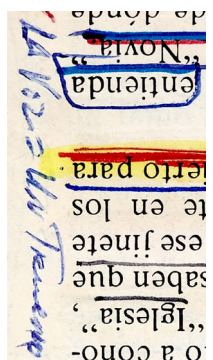 a cono-
“Iglesia”,
saben que
ese jinete
te en los
ierto para
entienda
“Novia”,
de dónde
La Voz
Un Trueno